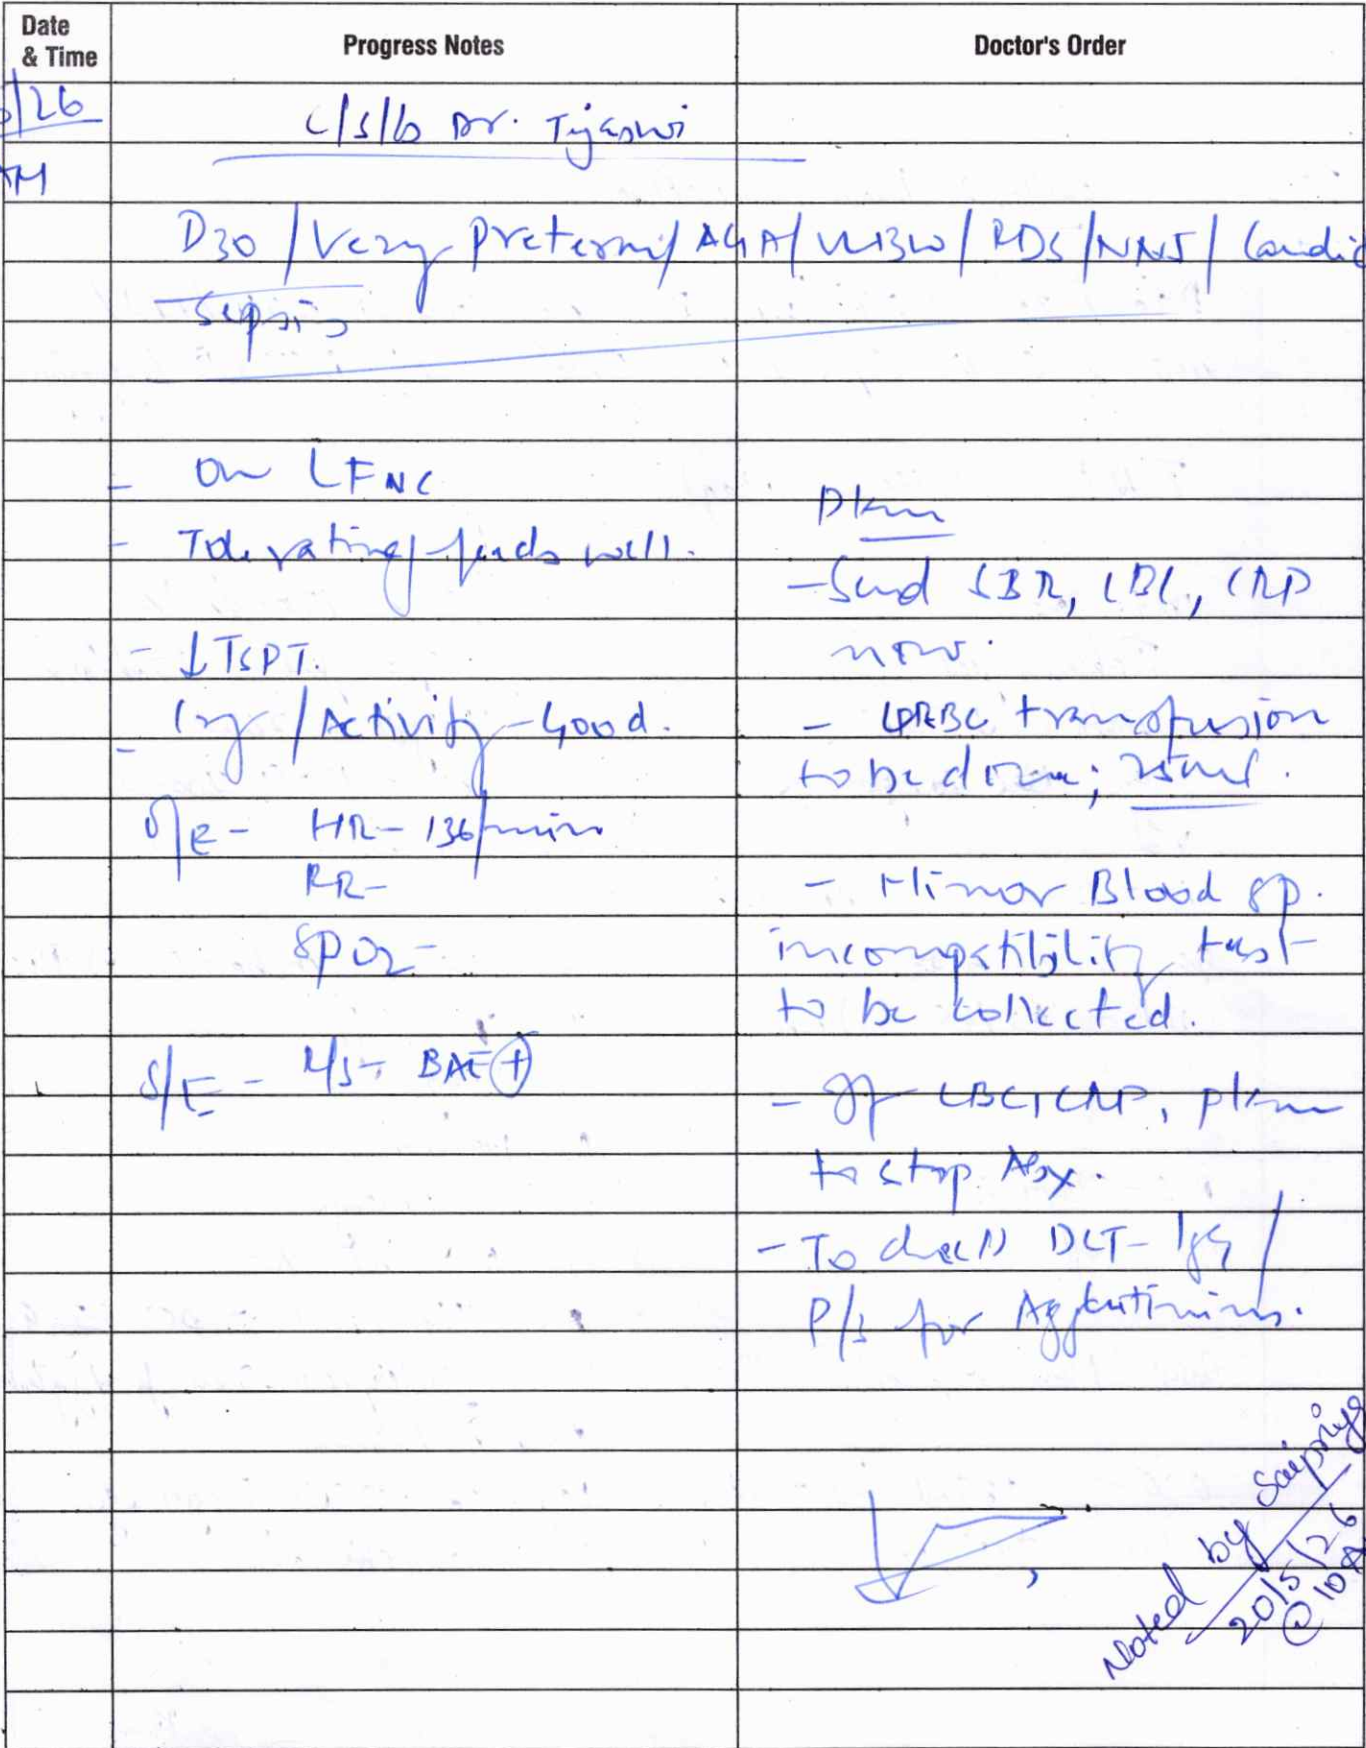 Date & Time
Progress Notes
Doctor's Order
5/26
AM
C/S/b Dr. Tejaswi
D30 / Very preterm / AGA / VLBW / RDS / NNJ / Candid
Sepsis
- on LFNC
- Tolerating feeds well.
- ↓TSPT.
- Cry / Activity - Good.
O/E - HR - 136/min
RR -
SpO2 -
S/E - R/S - BAE ⊕
Plan
- Send SBR, CBC, CRP
now.
- PRBC transfusion
to be done; 25ml.
- Minor Blood gp.
incompatibility test
to be collected.
- If CBC, CRP, plan
to stop Abx.
- To check DCT - IgG /
P/S for Agglutinins.
Noted by Saipriya
20/5/26
@ 10A